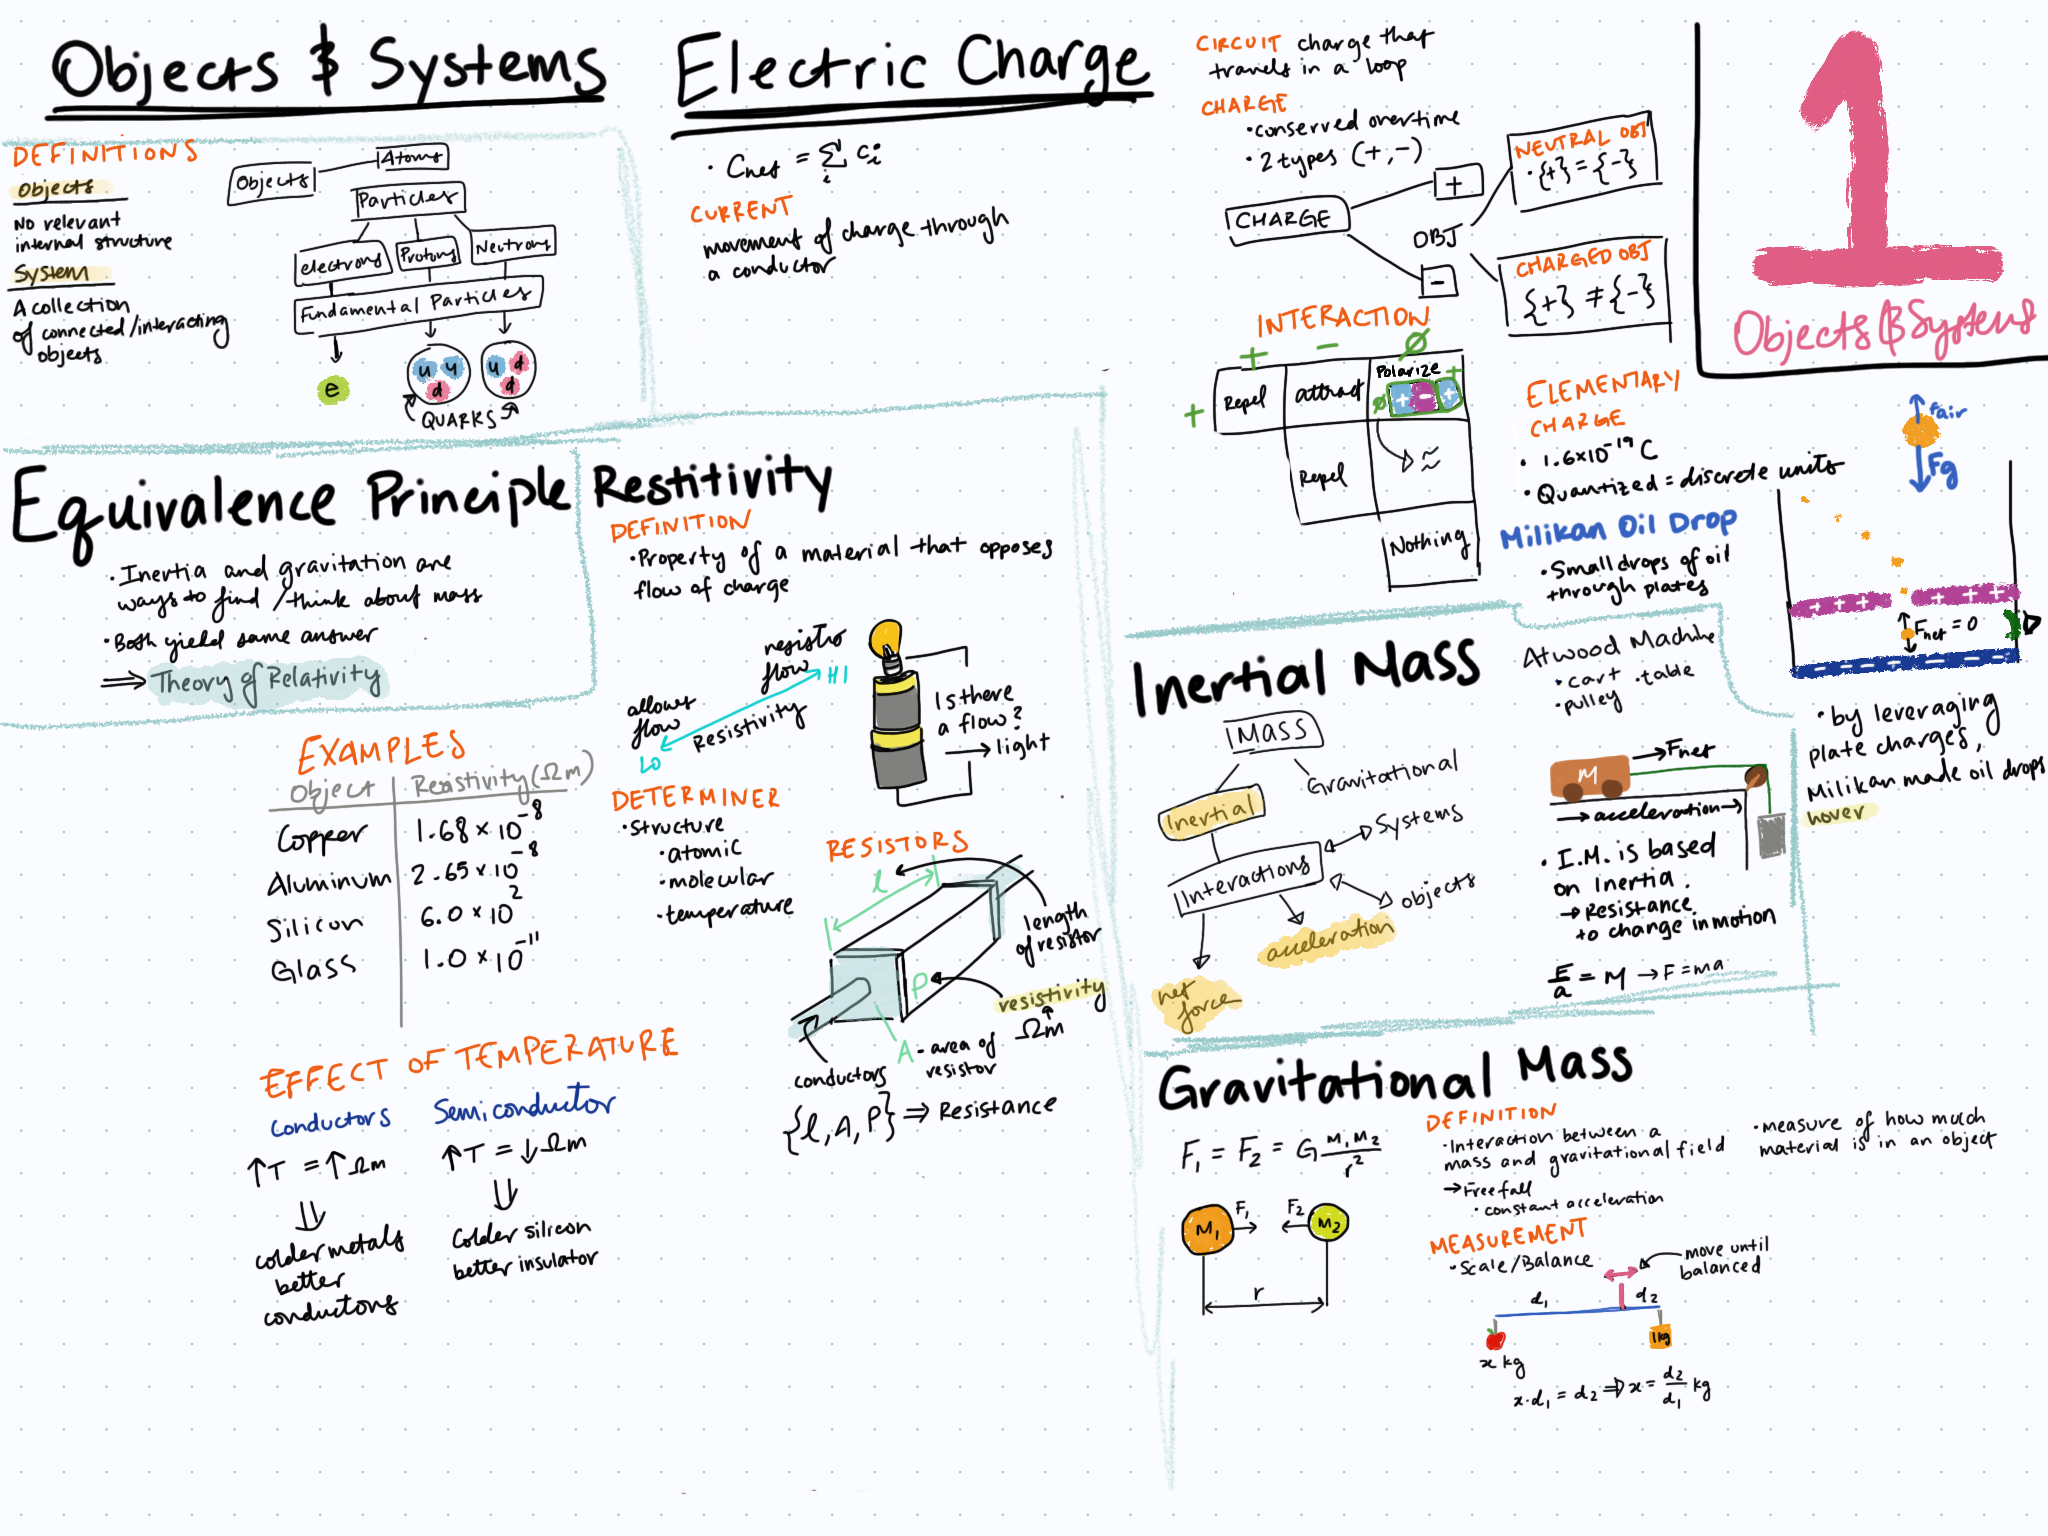 Objects & Systems
DEFINITIONS
Objects
No relevant
internal structure
System
A collection
of connected/interacting
objects.
Objects
Atoms
Particles
electrons
Protons
Neutrons
Fundamental Particles
e
u u
d
u d
d
QUARKS
Electric Charge
• Cnet = Σ ci
i
CURRENT
movement of charge through
a conductor
CIRCUIT charge that
travels in a loop
CHARGE
• conserved overtime
• 2 types (+,-)
CHARGE
+
-
OBJ
NEUTRAL OBJ
• {+} = {-}
CHARGED OBJ
{+} ≠ {-}
INTERACTION
+ - Ø
+
Repel
attract
Polarize
Ø + - + +
Repel
≈
Nothing
1
Objects & Systems
ELEMENTARY
CHARGE
• 1.6×10⁻¹⁹ C
• Quantized = discrete units
Milikan Oil Drop
• Small drops of oil
through plates
Fair
Fg
+ + + + + + + +
Fnet = 0
- - - - - - - -
• by leveraging
plate charges,
Milikan made oil drops
hover
Equivalence Principle
• Inertia and gravitation are
ways to find/think about mass
• Both yield same answer
⇒ Theory of Relativity
Restitivity
DEFINITION
• Property of a material that opposes
flow of charge
resists
flow
HI
allows
flow
LO
Resistivity
Is there
a flow?
→ light
DETERMINER
• structure
• atomic
• molecular
• temperature
EXAMPLES
Object Resistivity (Ωm)
Copper 1.68 × 10⁻⁸
Aluminum 2.65 × 10⁻⁸
Silicon 6.0 × 10²
Glass 1.0 × 10⁻¹¹
EFFECT OF TEMPERATURE
Conductors
↑T = ↑Ωm
⇓
colder metals
better
conductors
Semiconductor
↑T = ↓Ωm
⇓
Colder silicon
better insulator
RESISTORS
l
length
of resistor
P
resistivity
Ωm
A - area of
resistor
conductors
{l, A, P} ⇒ Resistance
Inertial Mass
MASS
Inertial
Gravitational
Interactions
Systems
objects
acceleration
net
force
Atwood Machine
• cart • table
• pulley
M
→ Fnet
→ acceleration →
• I.M. is based
on inertia.
→ Resistance
to change in motion
F/a = M → F = ma
Gravitational Mass
F₁ = F₂ = G M₁M₂/r²
M₁ F₁ F₂ M₂
r
DEFINITION
• Interaction between a
mass and gravitational field
→ Freefall
• constant acceleration
• measure of how much
material is in an object
MEASUREMENT
• Scale/Balance
move until
balanced
d₁ d₂
1kg
x kg
x·d₁ = d₂ ⇒ x = d₂/d₁ kg